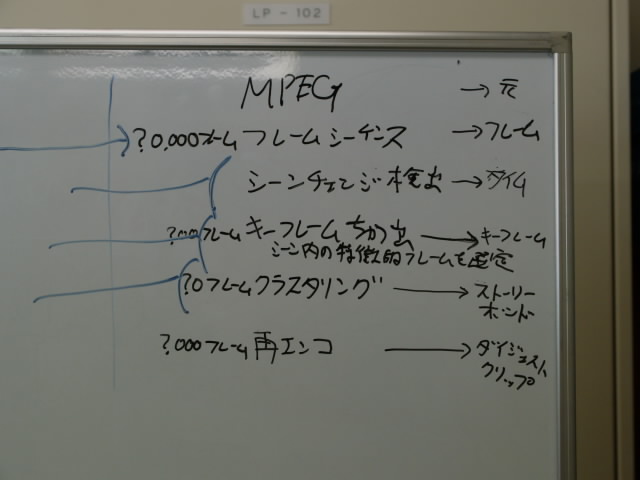 LP - 102
MPEG → 元
?0,000フレーム フレームシーケンス → フレーム
シーンチェンジ検出 → タイム
?000フレーム キーフレームちゅう出 → キーフレーム
シーン内の特徴的フレームを選定
?0フレーム クラスタリング → ストーリー
ボード
?000フレーム 再エンコ → ダイジェスト
クリップ